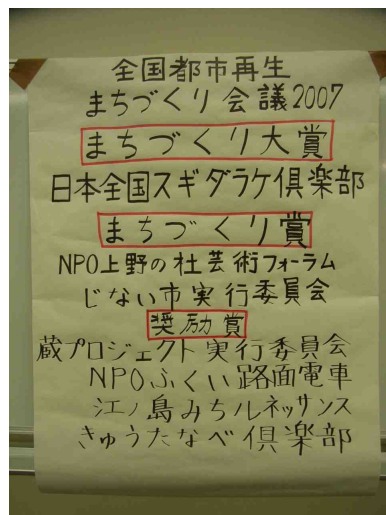 全国都市再生
まちづくり会議2007
まちづくり大賞
日本全国スギダラケ倶楽部
まちづくり賞
NPO上野の杜芸術フォーラム
じない市実行委員会
奨励賞
蔵プロジェクト実行委員会
NPOふくい路面電車
江ノ島みちルネッサンス
きゅうたなべ倶楽部